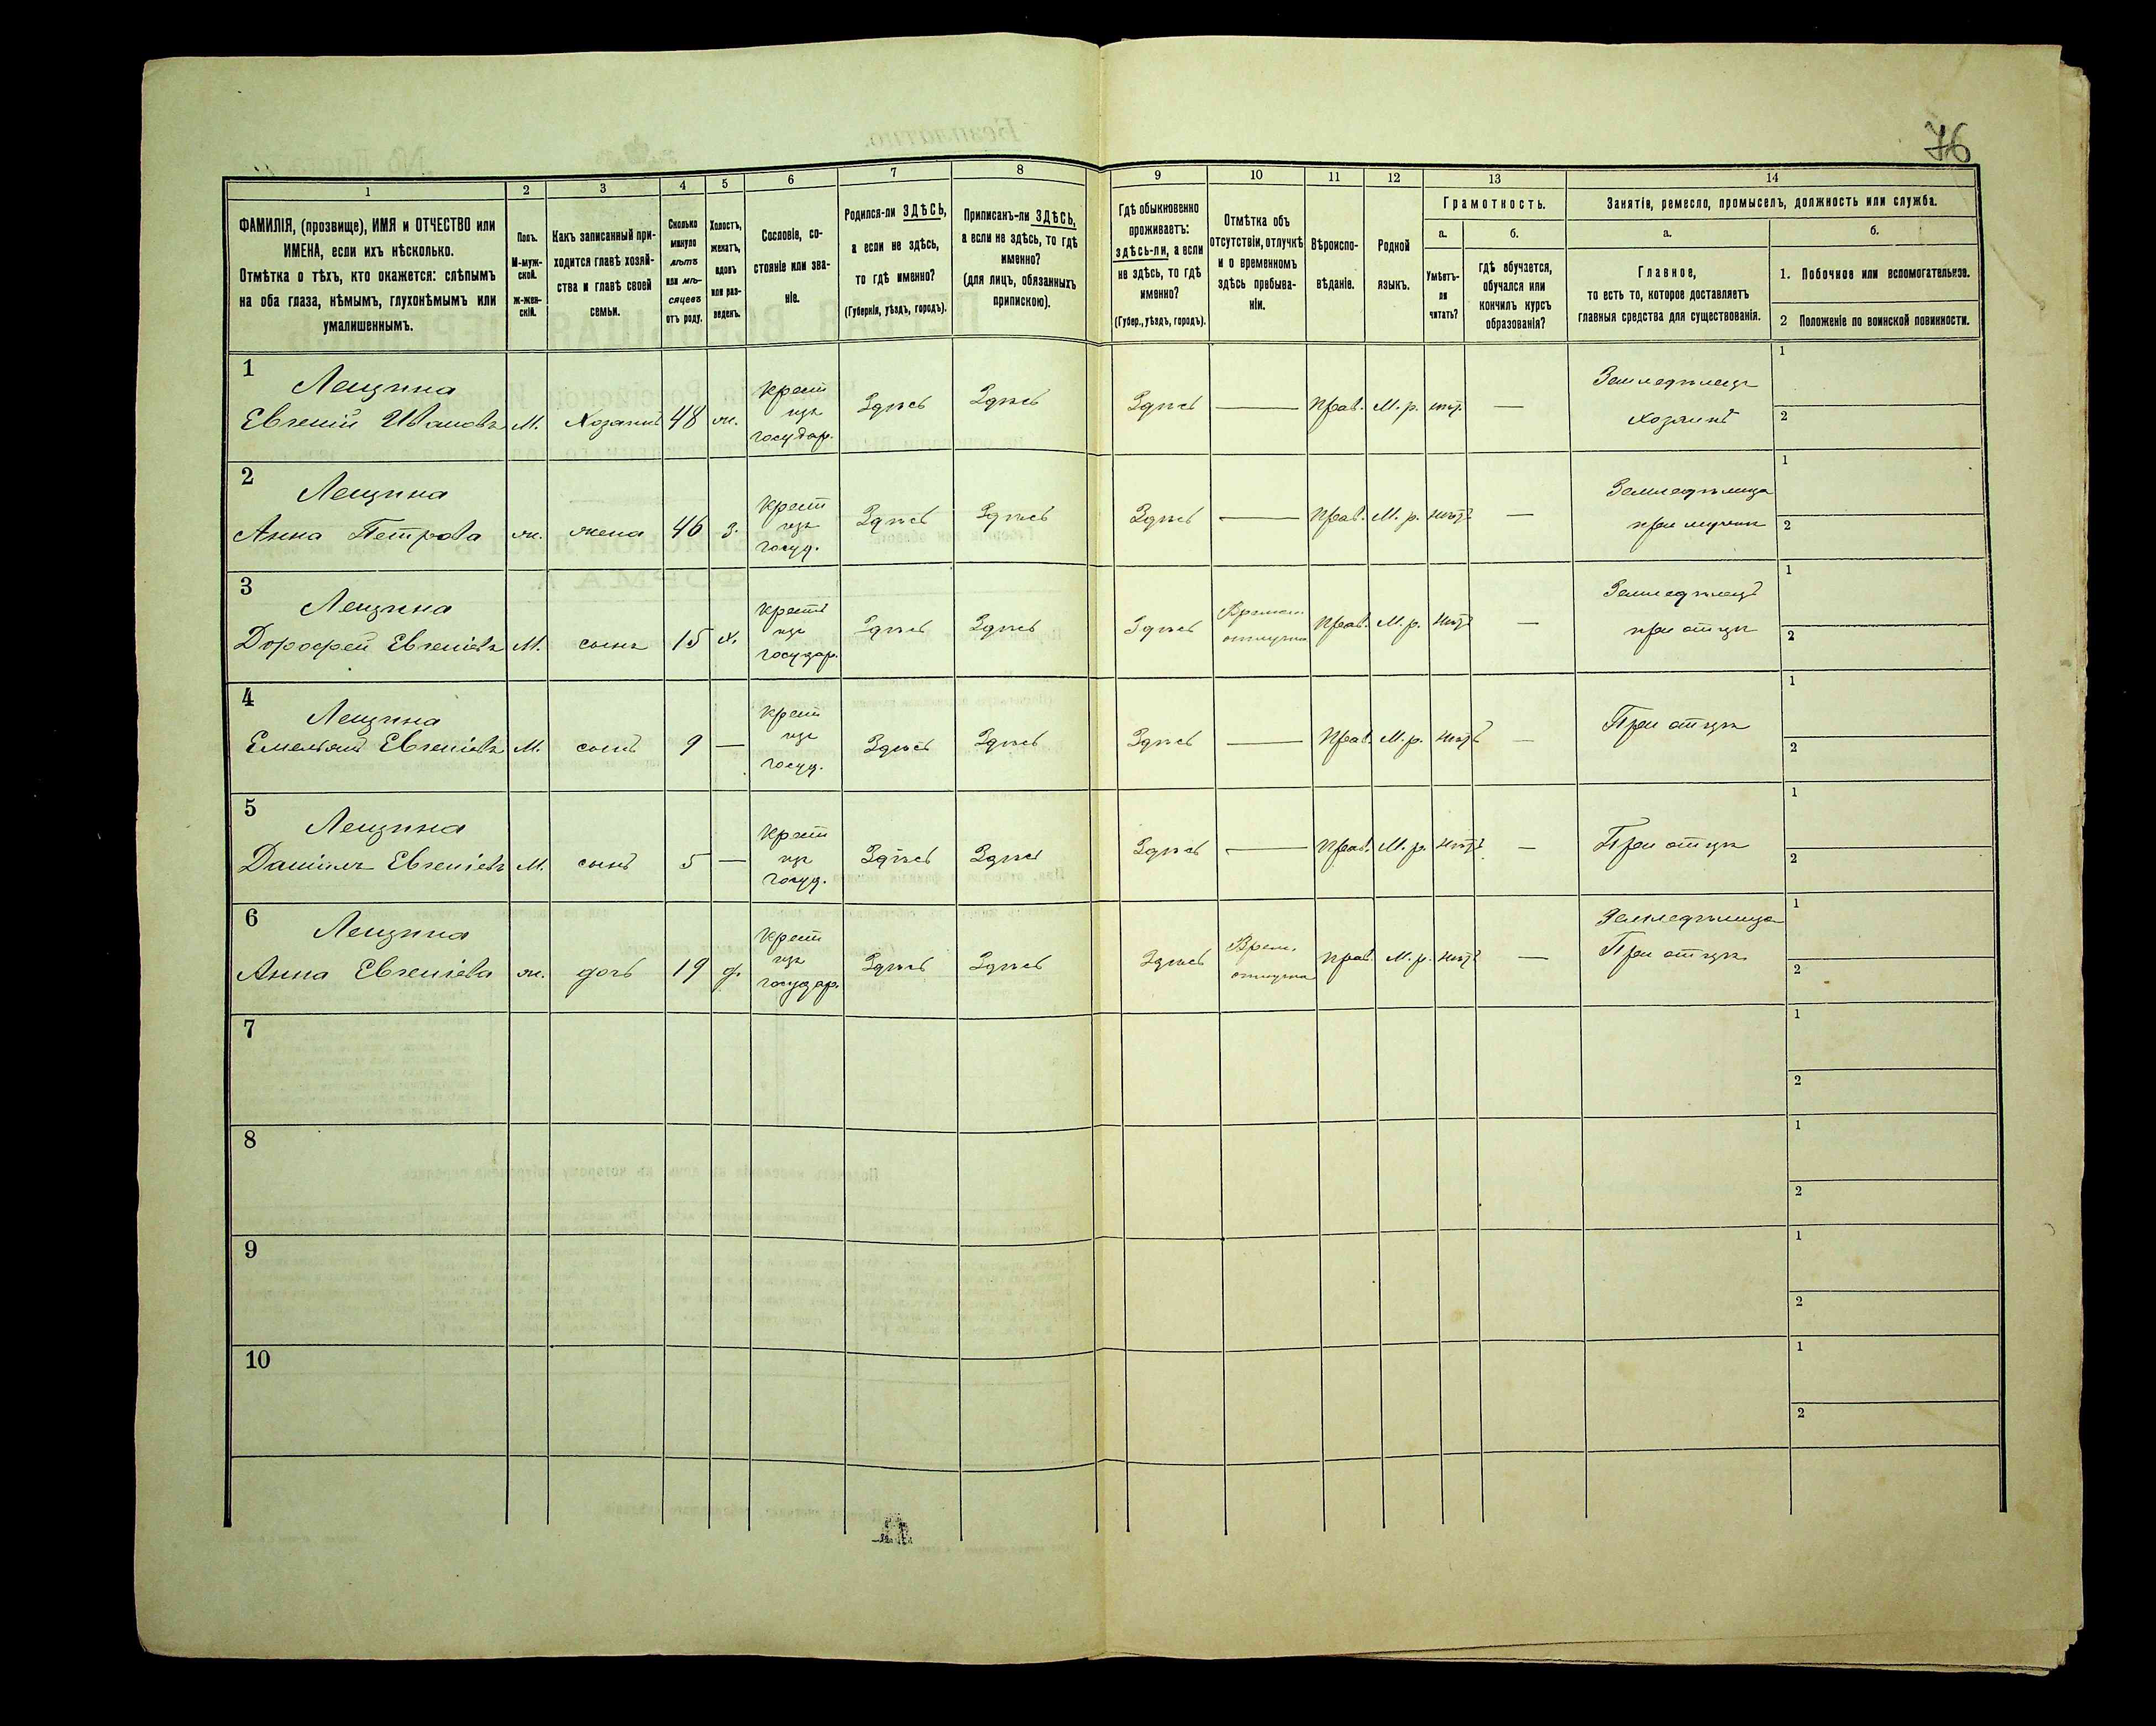 76
1 2 3 4 5 6 7 8 9 10 11 12 13 14
ФАМИЛІЯ, (прозвище), ИМЯ и ОТЧЕСТВО или
ИМЕНА, если ихъ нѣсколько.
Отмѣтка о тѣхъ, кто окажется: слѣпымъ
на оба глаза, нѣмымъ, глухонѣмымъ или
умалишеннымъ.
Полъ.
М-муж-
ской.
Ж-жен-
скій.
Какъ записанный при-
ходится главѣ хозяй-
ства и главѣ своей
семьи.
Сколько
минуло
лѣтъ
или мѣ-
сяцевъ
отъ роду.
Холостъ,
женатъ,
вдовъ
или раз-
веденъ.
Сословіе, со-
стояніе или зва-
ніе.
Родился-ли ЗДѢСЬ,
а если не здѣсь,
то гдѣ именно?
(Губернія, уѣздъ, городъ).
Приписанъ-ли ЗДѢСЬ,
а если не здѣсь, то гдѣ
именно?
(для лицъ, обязанныхъ
припискою).
Гдѣ обыкновенно
проживаетъ:
здѣсь-ли, а если
не здѣсь, то гдѣ
именно?
(Губер., уѣздъ, городъ).
Отмѣтка объ
отсутствіи, отлучкѣ
и о временномъ
здѣсь пребыва-
ніи.
Вѣроиспо-
вѣданіе.
Родной
языкъ.
Грамотность.
а.
Умѣетъ-
ли
читать?
б.
гдѣ обучается,
обучался или
кончилъ курсъ
образованія?
Занятіе, ремесло, промыселъ, должность или служба.
а.
Главное,
то есть то, которое доставляетъ
главныя средства для существованія.
б.
1. Побочное или вспомогательное.
2 Положеніе по воинской повинности.
1
Лещина Крест Земледѣлецъ 1
Евгеній Ивановъ М. Хозяинъ 48 ж. изъ Здѣсь Здѣсь Здѣсь — Прав. М. р. нѣт. — хозяинъ 2
государ.
2
Лещина Крест Земледѣлица 1
Анна Петрова ж. жена 46 з. изъ Здѣсь Здѣсь Здѣсь — Прав. М. р. нѣтъ — при мужѣ 2
госуд.
3
Лещина Крест Времен. Земледѣлецъ 1
Дорофей Евгеніевъ М. сынъ 15 х. изъ Здѣсь Здѣсь Здѣсь отлучка Прав. М. р. нѣтъ — при отцѣ 2
государ.
4
Лещина Крест 1
Емельянъ Евгеніевъ М. сынъ 9 — изъ Здѣсь Здѣсь Здѣсь — Прав. М. р. нѣтъ — При отцѣ 2
госуд.
5
Лещина Крест 1
Даніилъ Евгеніевъ М. сынъ 5 — изъ Здѣсь Здѣсь Здѣсь — Прав. М. р. нѣтъ — При отцѣ 2
госуд.
6
Лещина Крест Врем. Земледѣлица 1
Анна Евгеніева ж. дочь 19 д. изъ Здѣсь Здѣсь Здѣсь отлучка Прав. М. р. нѣтъ — При отцѣ 2
государ.
7 1
2
8 1
2
9 1
2
10 1
2